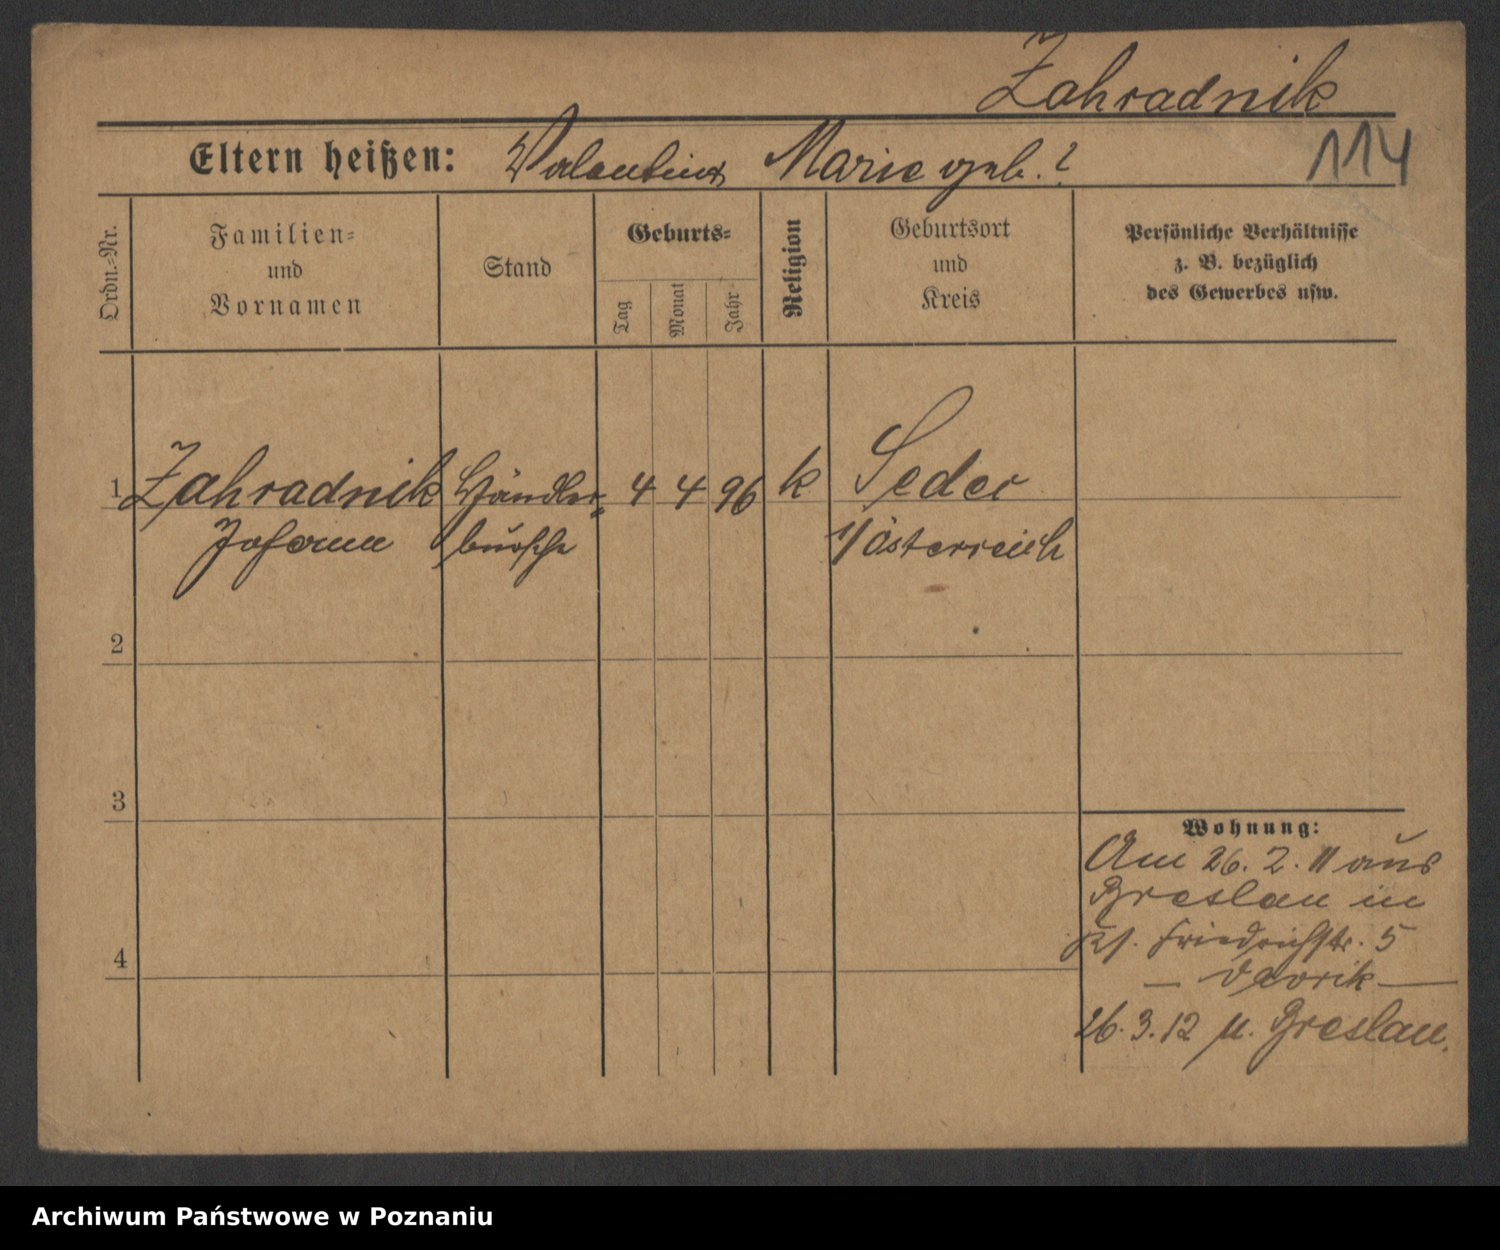 Zahradnik
Eltern heißen: Valentin Marie geb. ?
114
Ordn.-Nr.
Familien-
und
Vornamen
Stand
Geburts-
Tag
Monat
Jahr
Religion
Geburtsort
und
Kreis
Persönliche Verhältnisse
z. B. bezüglich
des Gewerbes usw.
1 Zahradnik Händler- 4 4 96 k Seder
Johann bursche i/ Österreich
2
3
4
Wohnung:
Am 26. 2. 11 aus
Breslau in
Friedrichstr. 5
— Dvorik —
26. 3. 12 n. Breslau.
Archiwum Państwowe w Poznaniu